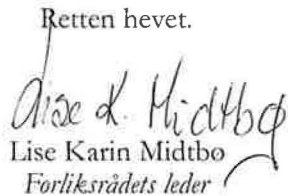 Retten hevet.
Lise K. Midtbø
Lise Karin Midtbø
Forliksrådets leder